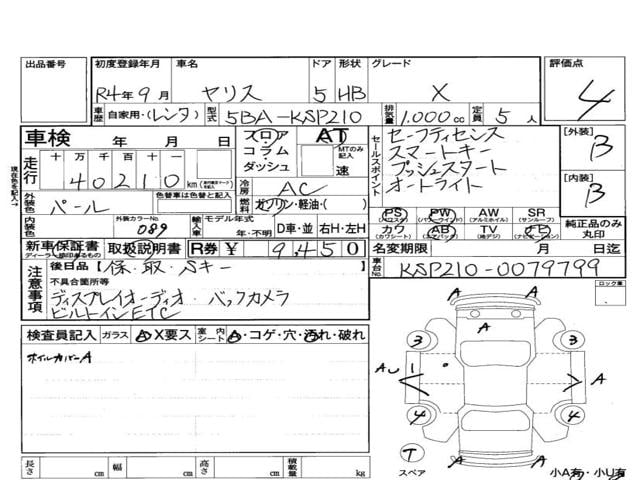 出品番号 初度登録年月 車名 ドア 形状 グレード 評価点
R4年9月 ヤリス 5 HB X 4
車歴 自家用・(レンタ) 型式 5BA-KSP210 排気量 1,000cc 定員 5人
車検 年 月 日 フロア AT セーフティセンス [外装]
コラム MTのみ記入 スマートキー B
走行 十万千百十一 ダッシュ 速 プッシュスタート
40210 km 冷房 AC オートライト [内装]
現在色を記入→ 外装色 パール 色替車は色替前と色替色を記入 燃料 ガソリン・軽油・( ) セールスポイント B
内装色 外装カラーNo. 089 輸入車 モデル年式 年・不明 D車・並 右H・左H
PS PW AW SR
(パワステ) (パワーウインド) (アルミホイル) (サンルーフ)
カワ AB TV ナビ 純正品のみ丸印
(カワシート) (エアバッグ) (地デジ)
新車保証書 取扱説明書 R券 ¥ 9,450 名変期限 月 日迄
注意事項 後日品 [保・取・Sキー 車台No. KSP210-0079799
不具合箇所等 ロック車
ディスプレイオーディオ バックカメラ
ビルトインETC
検査員記入 ガラス A・X要ス 室内シート A・コゲ・穴・汚れ・破れ
ホイルカバーA
A A
A
3 3
AU 1 A
4 4
T A
スペア 小A有・小U有
長さ cm 幅 cm 高さ cm 積載量 kg